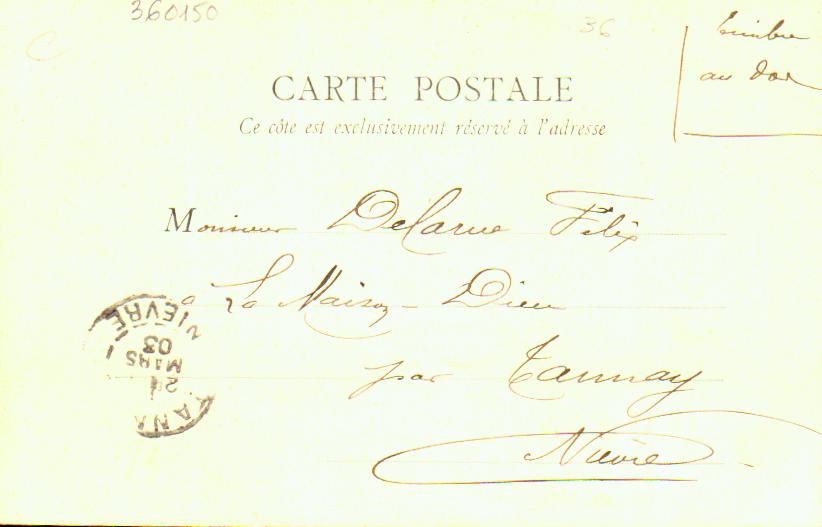 360150
36
C
timbre
au dos
CARTE POSTALE
Ce côte est exclusivement réservé à l'adresse
Monsieur Delarue Félix
a La Maison-Dieu
par Tannay
Nièvre
NIÈVRE
1
MARS
03